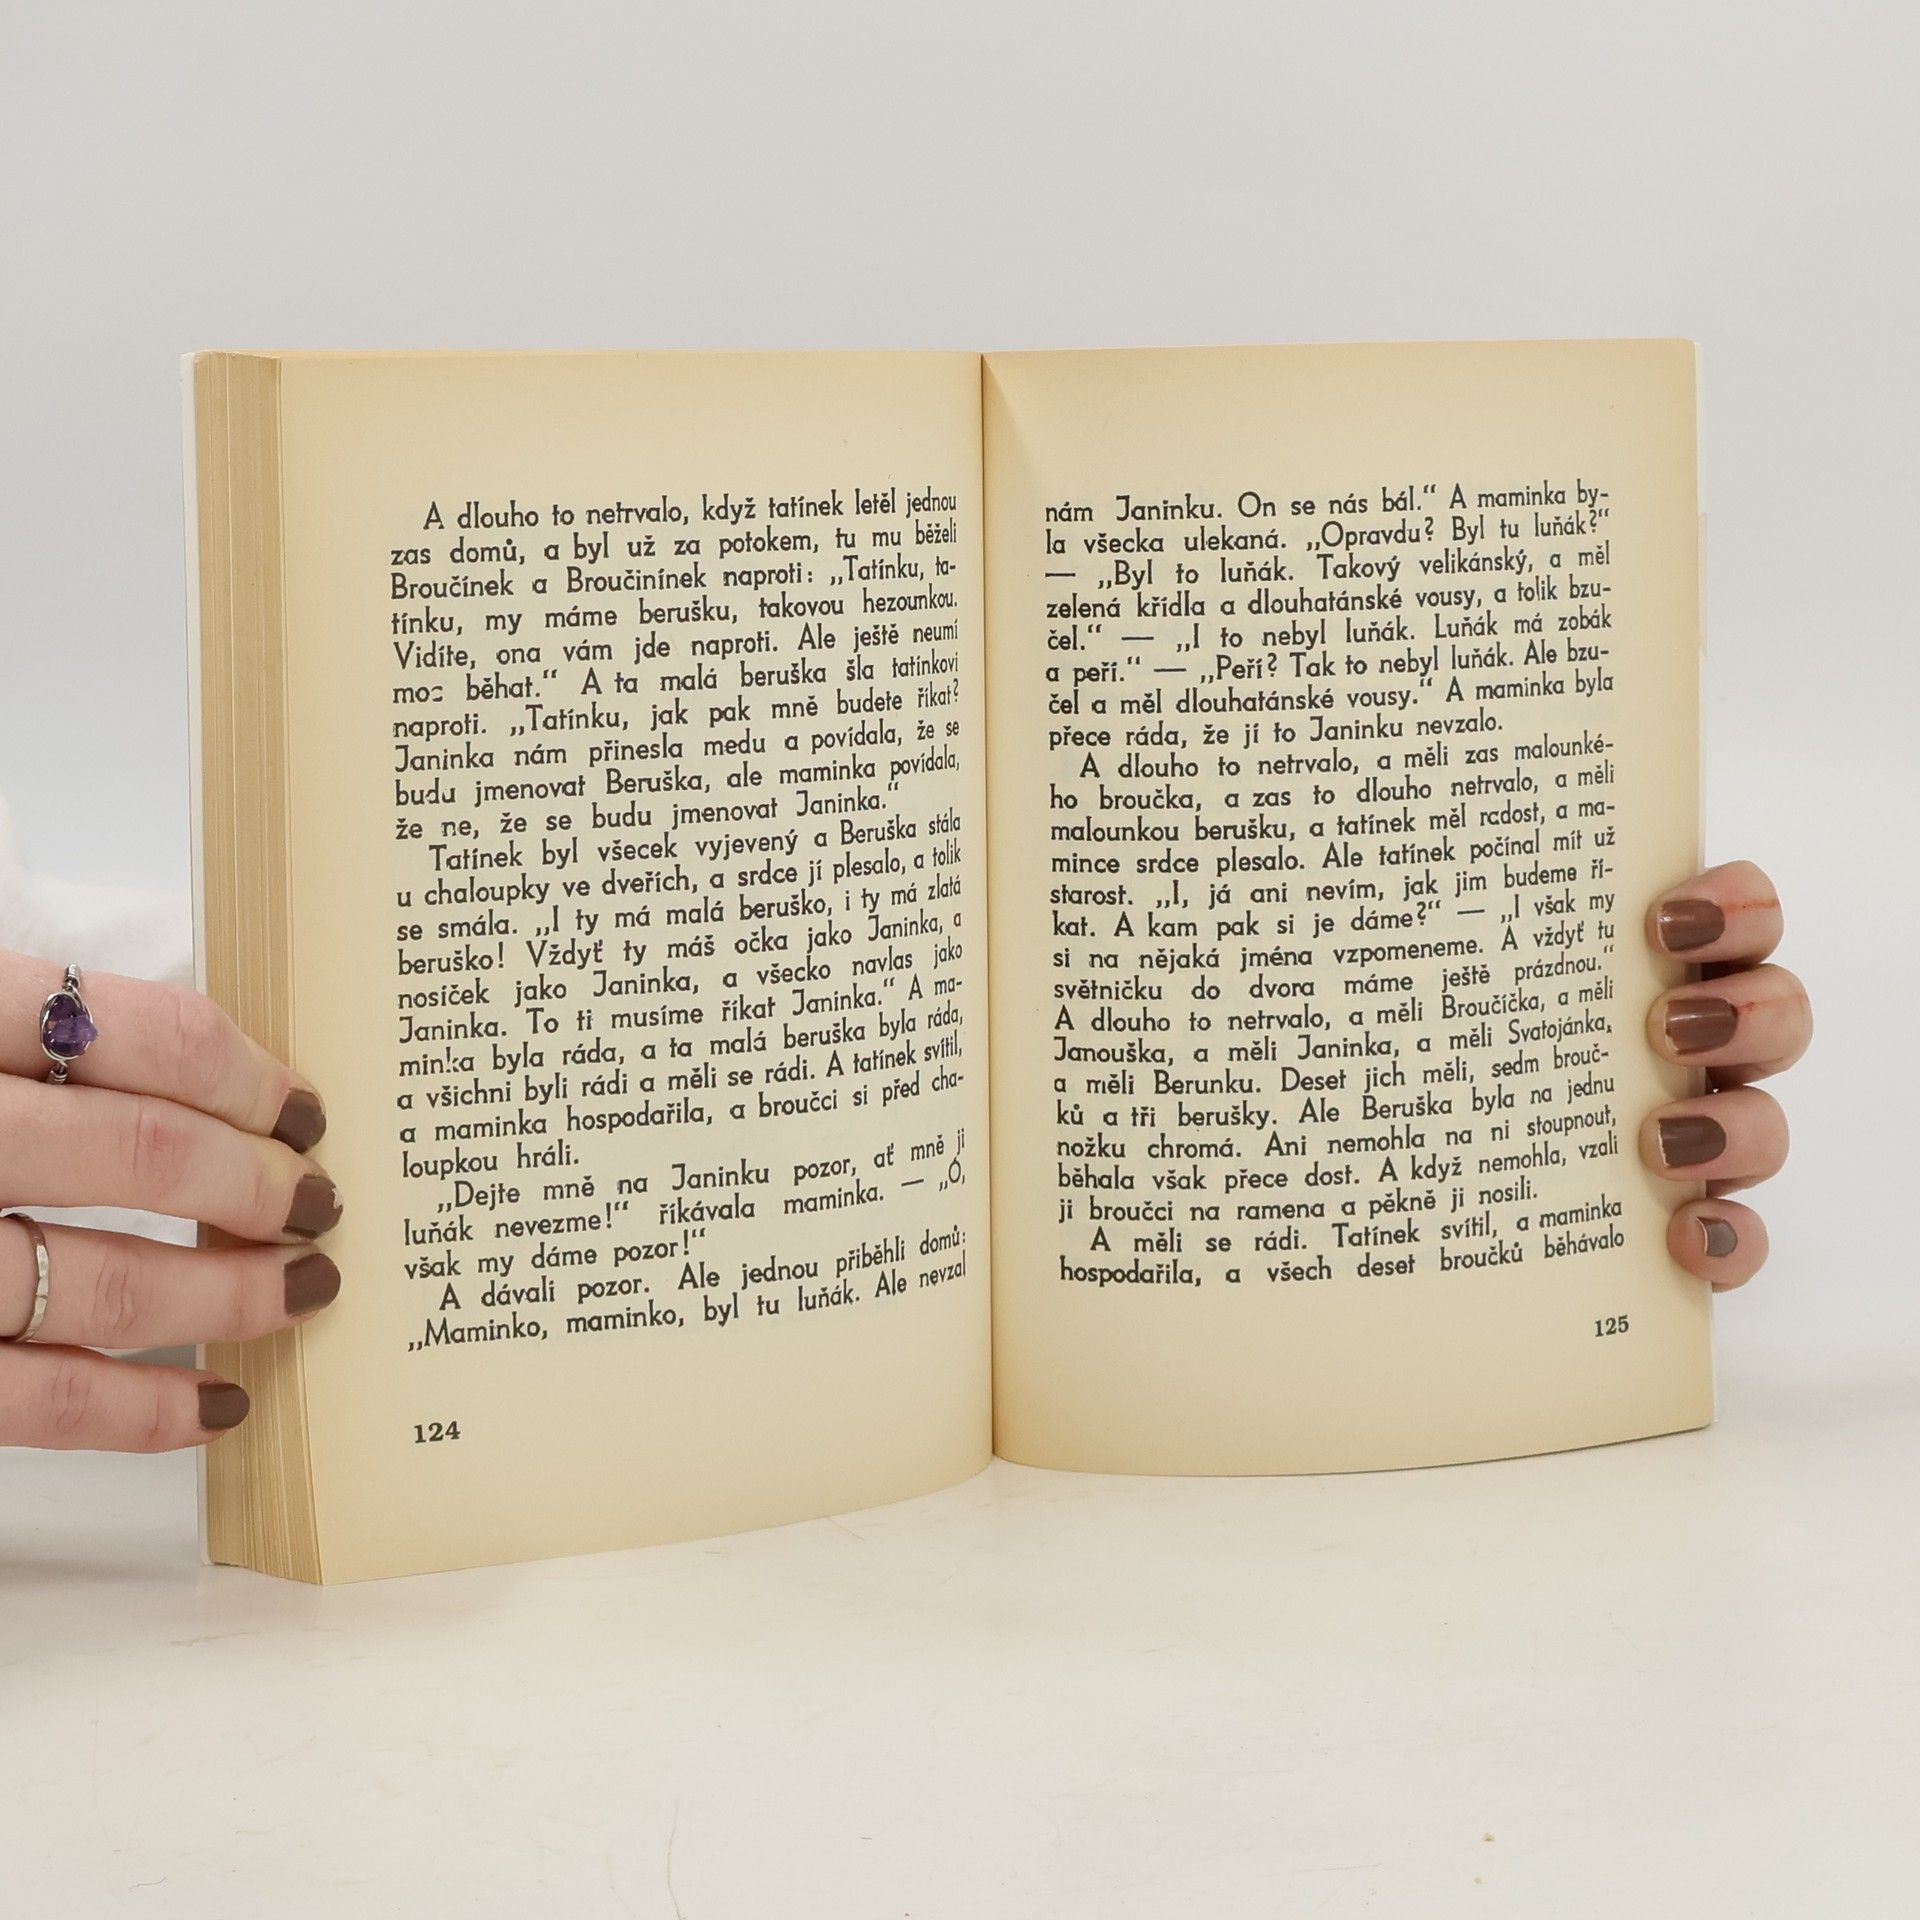 A dlouho to netrvalo, když tatínek letěl jednou
zas domů, a byl už za potokem, tu mu běželi
Broučínek a Broučinínek naproti: „Tatínku, ta-
tínku, my máme berušku, takovou hezounkou.
Vidíte, ona vám jde naproti. Ale ještě neumí
moc běhat.“ A ta malá beruška šla tatínkovi
naproti. „Tatínku, jak pak mně budete říkat?
Janinka nám přinesla medu a povídala, že se
budu jmenovat Beruška, ale maminka povídala,
že ne, že se budu jmenovat Janinka.“
Tatínek byl všecek vyjevený a Beruška stála
u chaloupky ve dveřích, a srdce jí plesalo, a tolik
se smála. „I ty má malá beruško, i ty má zlatá
beruško! Vždyť ty máš očka jako Janinka, a
nosíček jako Janinka, a všecko navlas jako
Janinka. To ti musíme říkat Janinka.“ A ma-
minka byla ráda, a ta malá beruška byla ráda,
a všichni byli rádi a měli se rádi. A tatínek svítil,
a maminka hospodařila, a broučci si před cha-
loupkou hráli.
„Dejte mně na Janinku pozor, ať mně ji
luňák nevezme!“ říkávala maminka. — „Ó,
však my dáme pozor!“
A dávali pozor. Ale jednou přiběhli domů:
„Maminko, maminko, byl tu luňák. Ale nevzal
124
nám Janinku. On se nás bál.“ A maminka by-
la všecka ulekaná. „Opravdu? Byl tu luňák?“
— „Byl to luňák. Takový velikánský, a měl
zelená křídla a dlouhatánské vousy, a tolik bzu-
čel.“ — „I to nebyl luňák. Luňák má zobák
a peří.“ — „Peří? Tak to nebyl luňák. Ale bzu-
čel a měl dlouhatánské vousy.“ A maminka byla
přece ráda, že jí to Janinku nevzalo.
A dlouho to netrvalo, a měli zas malounké-
ho broučka, a zas to dlouho netrvalo, a měli
malounkou berušku, a tatínek měl radost, a ma-
mince srdce plesalo. Ale tatínek počínal mít už
starost. „I, já ani nevím, jak jim budeme ří-
kat. A kam pak si je dáme?“ — „I však my
si na nějaká jména vzpomeneme. A vždyť tu
světničku do dvora máme ještě prázdnou.“
A dlouho to netrvalo, a měli Broučíčka, a měli
Janouška, a měli Janinka, a měli Svatojánka,
a měli Berunku. Deset jich měli, sedm brouč-
ků a tři berušky. Ale Beruška byla na jednu
nožku chromá. Ani nemohla na ni stoupnout,
běhala však přece dost. A když nemohla, vzali
ji broučci na ramena a pěkně ji nosili.
A měli se rádi. Tatínek svítil, a maminka
hospodařila, a všech deset broučků běhávalo
125